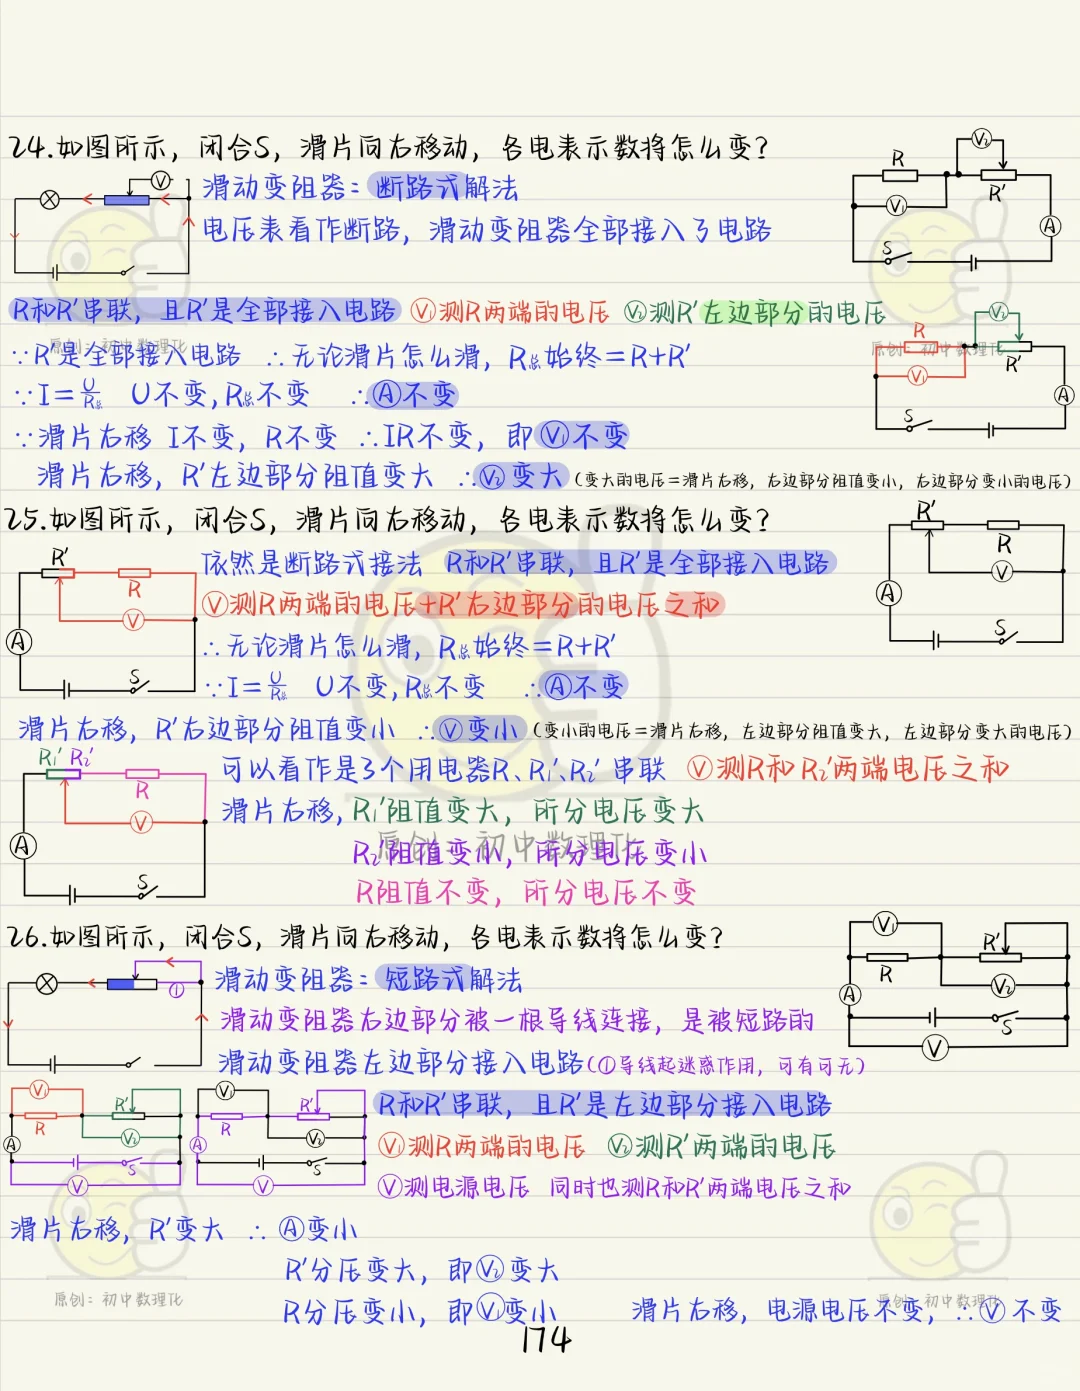 24.如图所示，闭合S，滑片向右移动，各电表示数将怎么变？
滑动变阻器：断路式解法
电压表看作断路，滑动变阻器全部接入了电路
V
R
V₂
R′
V₁
A
S
R和R′串联，且R′是全部接入电路 V₁测R两端的电压 V₂测R′左边部分的电压
原创：初中数理化
原创：初中数理化
∵R′是全部接入电路 ∴无论滑片怎么滑，R总始终=R+R′
∵I=U/R总 U不变，R总不变 ∴A不变
∵滑片右移 I不变，R不变 ∴IR不变，即V₁不变
滑片右移，R′左边部分阻值变大 ∴V₂变大（变大的电压=滑片右移，右边部分阻值变小，右边部分变小的电压）
V₂
R
R′
V₁
A
S
25.如图所示，闭合S，滑片向右移动，各电表示数将怎么变？
R′
R
V
A
S
依然是断路式接法 R和R′串联，且R′是全部接入电路
V测R两端的电压+R′右边部分的电压之和
∴无论滑片怎么滑，R总始终=R+R′
∵I=U/R总 U不变，R总不变 ∴A不变
R′
R
V
A
S
滑片右移，R′右边部分阻值变小 ∴V变小（变小的电压=滑片右移，左边部分阻值变大，左边部分变大的电压）
R₁′ R₂′
R
V
A
S
可以看作是3个用电器R、R₁′、R₂′串联 V测R和R₂′两端电压之和
滑片右移，R₁′阻值变大，所分电压变大
原创：初中数理化
R₂′阻值变小，所分电压变小
R阻值不变，所分电压不变
26.如图所示，闭合S，滑片向右移动，各电表示数将怎么变？
滑动变阻器：短路式解法
①
滑动变阻器右边部分被一根导线连接，是被短路的
滑动变阻器左边部分接入电路（①导线起迷惑作用，可有可无）
V₁
R′
R
V₂
A
S
V
V₁
R′
R
V₂
A
S
V
V₁
R′
R
V₂
A
S
V
R和R′串联，且R′是左边部分接入电路
V₁测R两端的电压 V₂测R′两端的电压
V测电源电压 同时也测R和R′两端电压之和
滑片右移，R′变大 ∴A变小
R′分压变大，即V₂变大
R分压变小，即V₁变小 滑片右移，电源电压不变，∴V不变
原创：初中数理化
原创：初中数理化
174